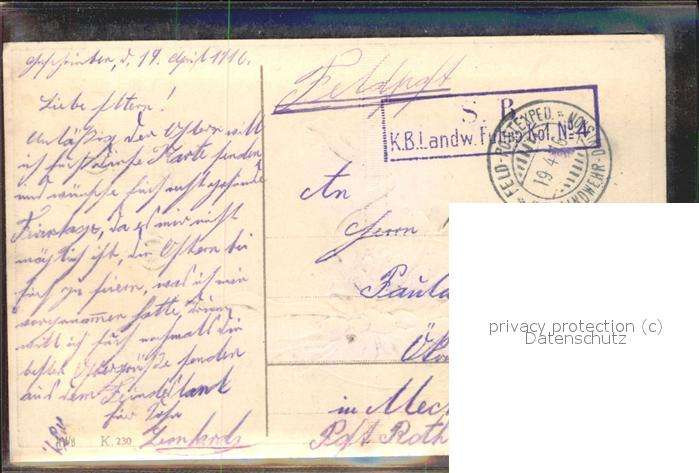 Geschrieben, d. 19. April 1916.
Liebe Eltern!
Anläßig der Ostern will
ich Euch diese Karte senden
und wünsche Euch recht gesunde
Feiertage, da es mir nicht
möglich ist, die Ostern bei
Euch zu feiern, was ich mir
vorgenommen hatte, drum
will ich Euch nochmals die
besten Ostergrüße senden
aus dem Feindesland
Euer Sohn
Leonhard
K. 230
Feldpost
S. B.
K.B.Landw. Fuhrp. Kol. No 4
FELD-POSTEXPED.
19.4.
LANDWEHR-D
An
Herrn
Paul
in Mec
Post Roth
privacy protection (c)
Datenschutz